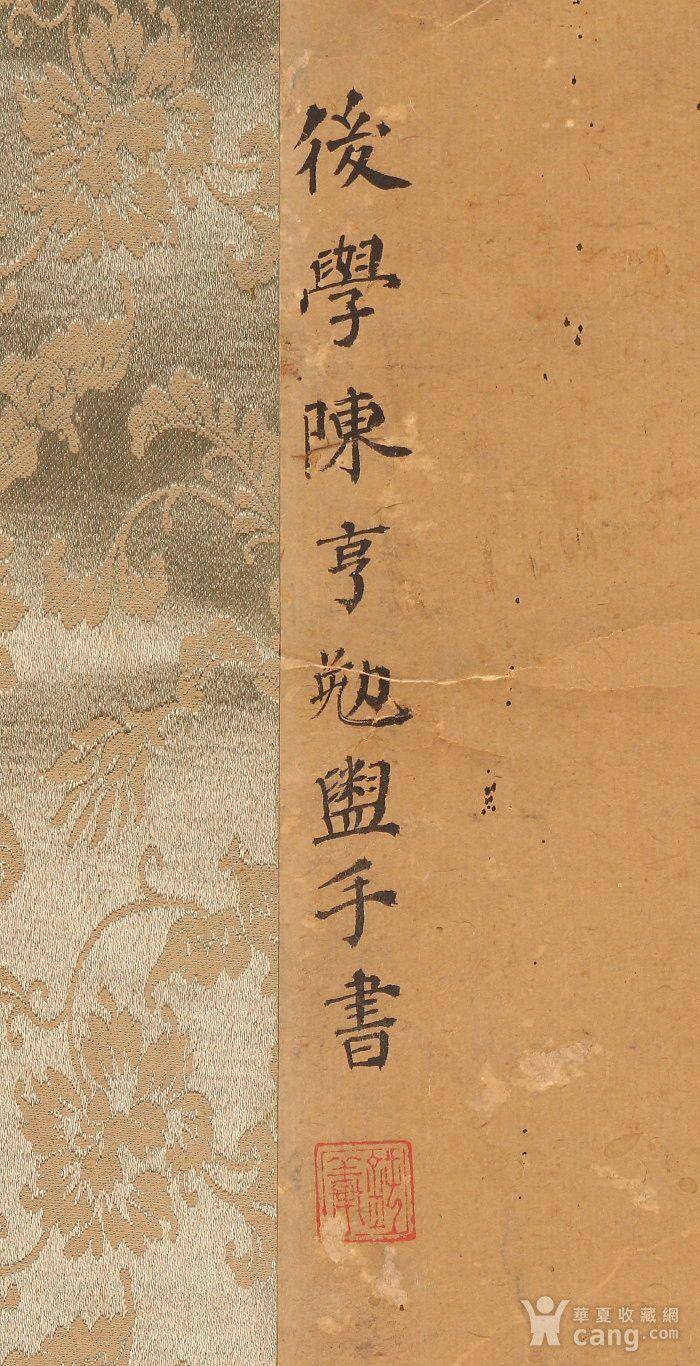 後學陳亨勉盥手書
華夏收藏網
cang.com